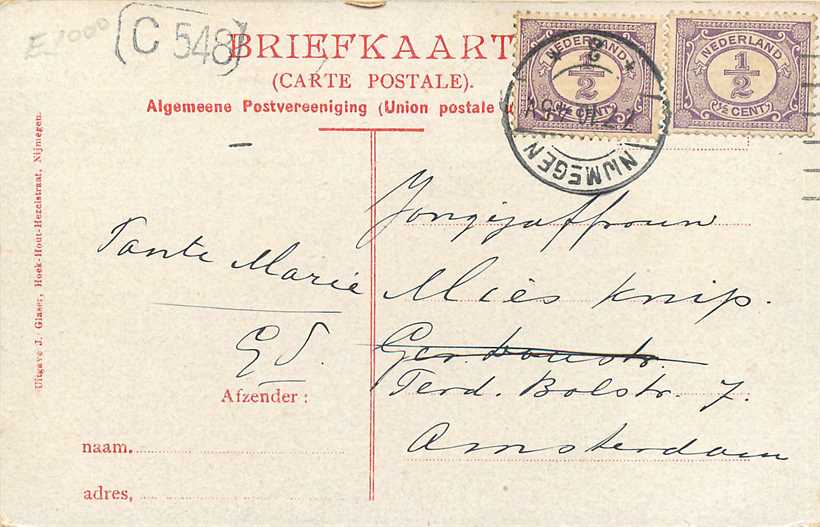 C 548
BRIEFKAART
(CARTE POSTALE).
Algemeene Postvereeniging (Union postale u
NEDERLAND
1/2
(½ CENT)
NEDERLAND
1/2
(½ CENT)
NIJMEGEN
Jongejuffrouw
Mies Knip.
Ferd. Bolstr. 7.
Amsterdam
Tante Marie
Afzender:
naam.
adres,
Uitgave J. Glaser, Hoek-Hout-Hezelstraat, Nijmegen.